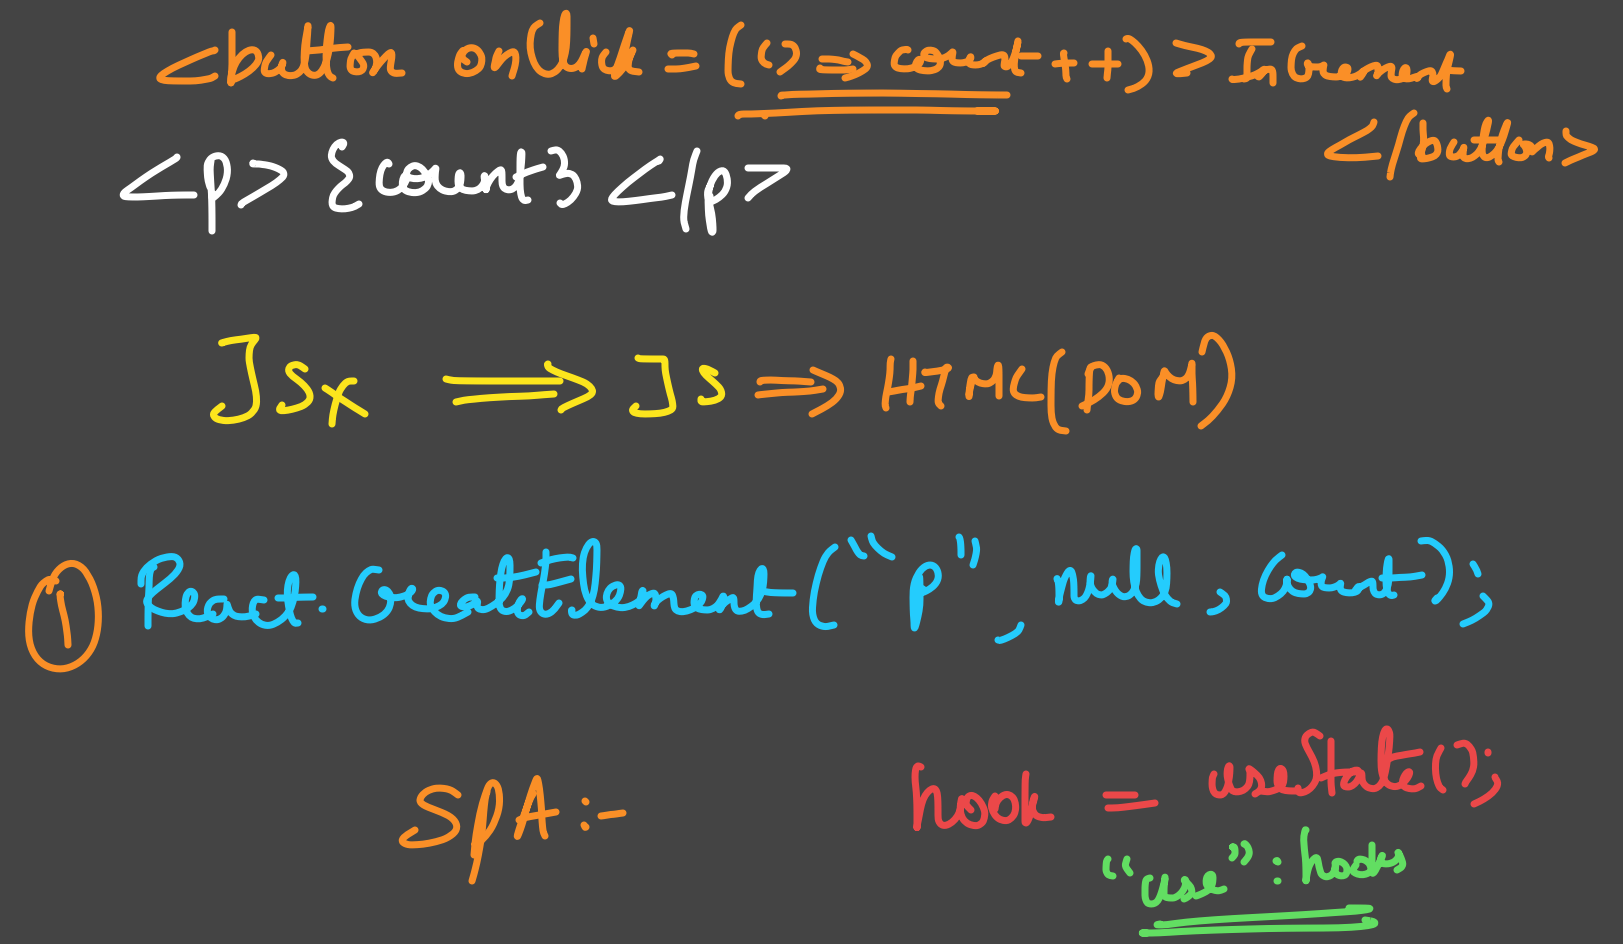 <button onClick = (() => count++) > Increment
</button>
<p> {count} </p>
JSX => JS => HTML(DOM)
1 React.createElement("p", null, count);
SPA :-
hook = useState();
"use" : hooks